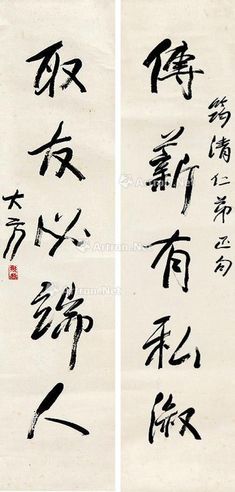 筠清仁弟正句
傳薪有私淑
取友必端人
大方
Artron.Net
Artron.Net